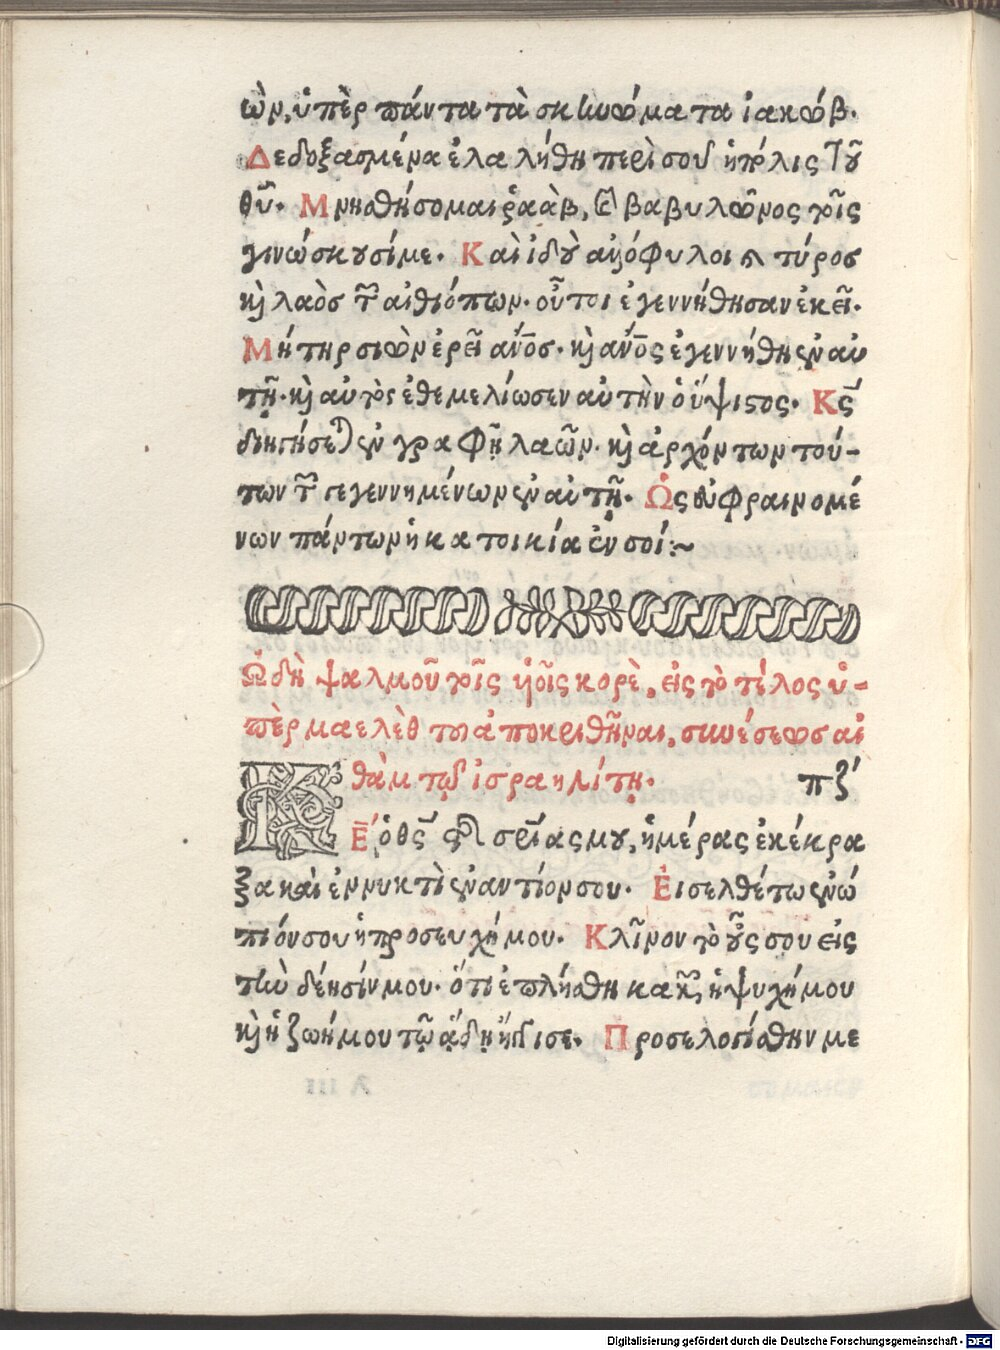 ὼν, ὑπὲρ πάντα τὰ σκηνώματα ἰακώβ.
Δεδοξασμένα ἐλαλήθη περὶ σοῦ ἡ πόλις τοῦ
θῦ. Μνησθήσομαι ῥαὰβ, καὶ βαβυλῶνος τοῖς
γινώσκουσί με. Καὶ ἰδοὺ ἀλλόφυλοι καὶ τύρος
καὶ λαὸς τῶν αἰθιόπων. οὗτοι ἐγεννήθησαν ἐκεῖ.
Μήτηρ σιὼν ἐρεῖ ἄνος. καὶ ἄνος ἐγεννήθη ἐν αὐ
τῇ. καὶ αὐτὸς ἐθεμελίωσεν αὐτὴν ὁ ὕψιστος. Κς
διηγήσεται ἐν γραφῇ λαῶν. καὶ ἀρχόντων τού-
των τῶν γεγεννημένων ἐν αὐτῇ. Ὡς εὐφραινομέ
νων πάντων ἡ κατοικία ἐν σοί:~
Ὠδὴ ψαλμοῦ τοῖς υἱοῖς κορὲ, εἰς τὸ τέλος ὑ-
πὲρ μαελὲθ τοῦ ἀποκριθῆναι, συνέσεως αἰ
θὰμ τῷ ἰσραηλίτῃ. πζ′
Κ Ε ὁ θς τῆς σωτηρίας μου, ἡμέρας ἐκέκρα
ξα καὶ ἐν νυκτὶ ἐναντίον σου. Εἰσελθέτω ἐνώ
πιόν σου ἡ προσευχή μου. Κλῖνον τὸ οὖς σου εἰς
τὴν δέησίν μου. ὅτι ἐπλήσθη κακῶν ἡ ψυχή μου
καὶ ἡ ζωή μου τῷ ᾅδῃ ἤγγισε. Προσελογίσθην με
Digitalisierung gefördert durch die Deutsche Forschungsgemeinschaft - DFG